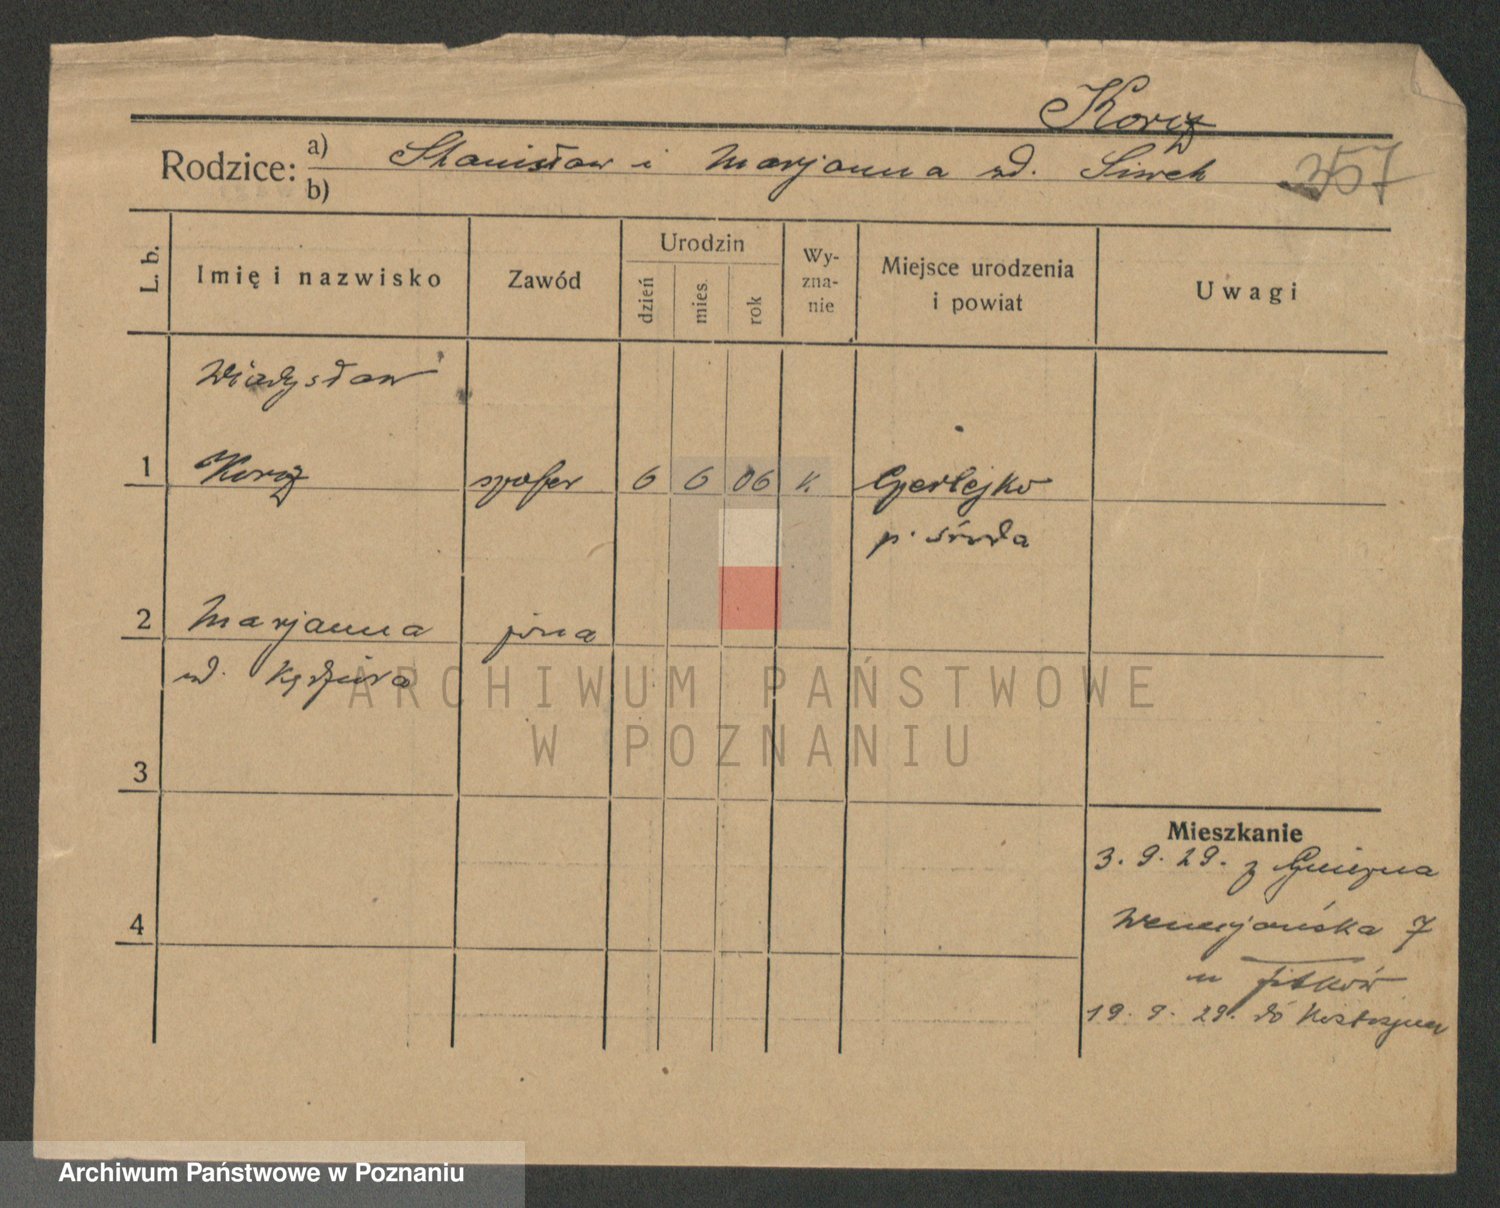 Korcz
Rodzice: a) Stanisław i Marjanna zd. Siwek 357
b)
L. b.
Imię i nazwisko
Zawód
Urodzin
dzień
mies.
rok
Wy-
zna-
nie
Miejsce urodzenia
i powiat
Uwagi
Władysław
1 Korcz szofer 6 6 06 k. Gierłejko
p. Środa
2 Marjanna żona
zd. Kędziora
3
4
Mieszkanie
3. 9. 29. z Gniezna
Wenecjańska 7
u
19. 9. 29. do Kostrzyna
ARCHIWUM PAŃSTWOWE
W POZNANIU
Archiwum Państwowe w Poznaniu